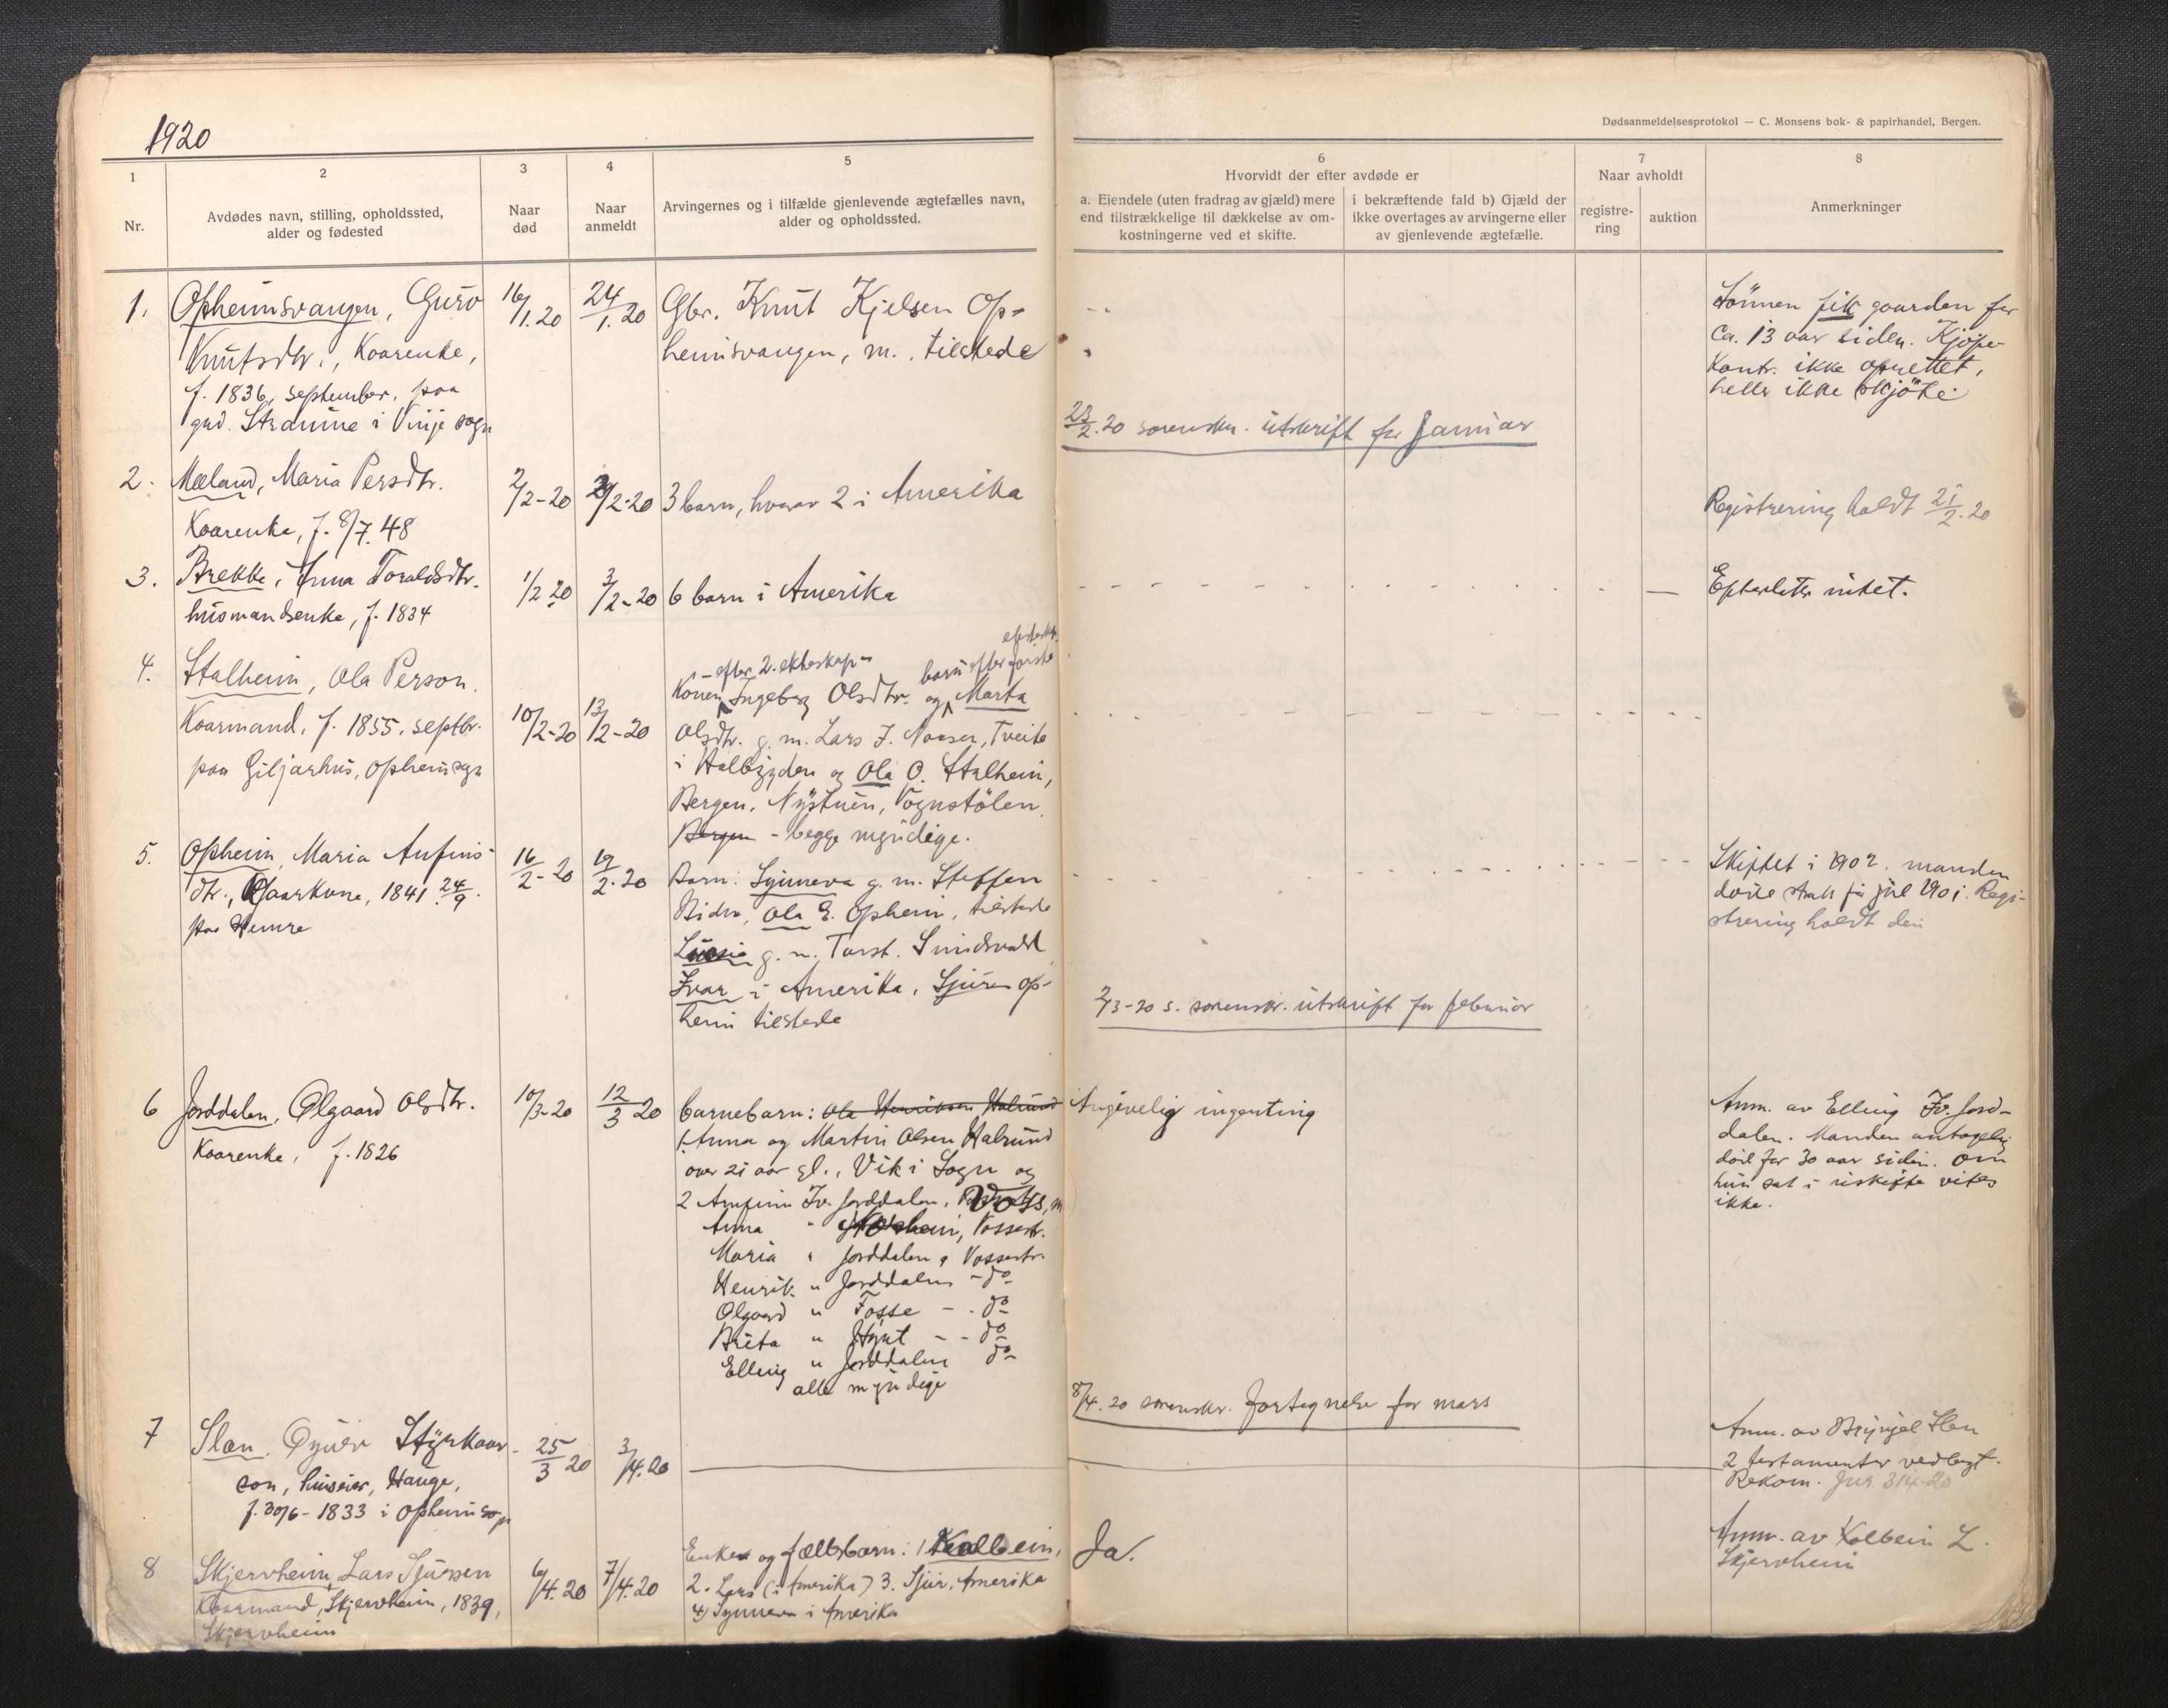 1920
Dødsanmeldelsesprotokol — C. Monsens bok- & papirhandel, Bergen.
1
Nr.
2
Avdødes navn, stilling, opholdssted,
alder og fødested
3
Naar
død
4
Naar
anmeldt
5
Arvingernes og i tilfælde gjenlevende ægtefælles navn,
alder og opholdssted.
6
Hvorvidt der efter avdøde er
a. Eiendele (uten fradrag av gjæld) mere
end tilstrækkelige til dækkelse av om-
kostningerne ved et skifte.
i bekræftende fald b) Gjæld der
ikke overtages av arvingerne eller
av gjenlevende ægtefælle.
7
Naar avholdt
registre-
ring
auktion
8
Anmerkninger
1.
Opheimsvangen, Guro
Knutsdtr., Kaarenke,
f. 1836, september, paa
grd. Straume i Vinje sogn
16/1.20
24/1.20
Gbr. Knut Kjelsen Op-
heimsvangen, m., tilstede
Sönnen fik gaarden for
ca. 13 aar siden. Kjöpe-
kontr. ikke oprettet,
heller ikke skjöte.
23/2.20 sorenskr. utskrift for Januar
2.
Mæland, Maria Persdtr.
Kaarenke, f. 8/7.48
2/2-20
2/2-20
3 barn, hvorav 2 i Amerika
Registrering holdt 21/2.20
3.
Brekke, Anna Toraldsdtr.
husmandsenke, f. 1834
1/2 20
3/2-20
6 barn i Amerika
Efterlater intet.
4.
Stalheim, Ola Person,
Kaarmand, f. 1855, septbr.
paa Giljarhus, Opheim sgn
10/2-20
13/2-20
- efter 2. ekteskap - barn efter første
Konen Ingeborg Olsdtr. og Marta
Olsdtr. g. m. Lars J. Naasen, Tveite
i Halbygden og Ola O. Stalheim,
Bergen, Nystuen, Vognstölen
Bergen - begge myndige.
5.
Opheim, Maria Anfins-
dtr., Gaarkone, 1841 24/9.
paa Hemre
16/2-20
19/2.20
Barn: Synneva g. m. Steffen
Bidne, Ola E. Opheim, tilstede
Lussia g. m. Torst. Sundsvald
Ivar i Amerika, Sjur Op-
heim tilstede
Skiftet i 1902. manden
döde straks för jul 1901. Regi-
strering holdt den
2/3-20 s. sorenskr. utskrift for februar
6
Jorddalen, Ølgaard Olsdtr.
Kaarenke, f. 1826
10/3-20
12/3 20
barnebarn: Ola Henriksen Halsund
1. Anna og Martin Olsen Halsund
over 21 aar gl., Vik i Sogn og
2 Amfinn Iv. Jorddalen, Voss, m
Anna " Vossestr.
Maria " Jorddalen, Vossestr.
Henrik " Jorddalen - do
Olgaard " Fosse - - do
Brita " Hynt - - do
Elling " Jorddalen do
alle myndige
Angivelig ingenting
Anm. av Elling Iv. Jord-
dalen. Manden antagelig
död for 30 aar siden. Om
hun sat i uskifte vites
ikke.
8/4.20 sorenskr. fortegnelse for mars
7
Slæn, Styrkaar-
son, huseier, Hauge,
f. 30/6-1833 i Opheim sogn
25/3 20
3/4.20
Anm. av Brynjel Slæn
2 testamenter vedlagt.
Rekom. 3/4-20
8
Skjervheim, Lars Sjursen
Kaarmand, Skjervheim, 1839,
Skjervheim
6/4.20
7/4.20
Enke og fællesbarn: 1 Kolbein,
2. Lars (i Amerika) 3. Sjur, Amerika
4) Synneva i Amerika
Ja.
Anm. av Kolbein L.
Skjervheim